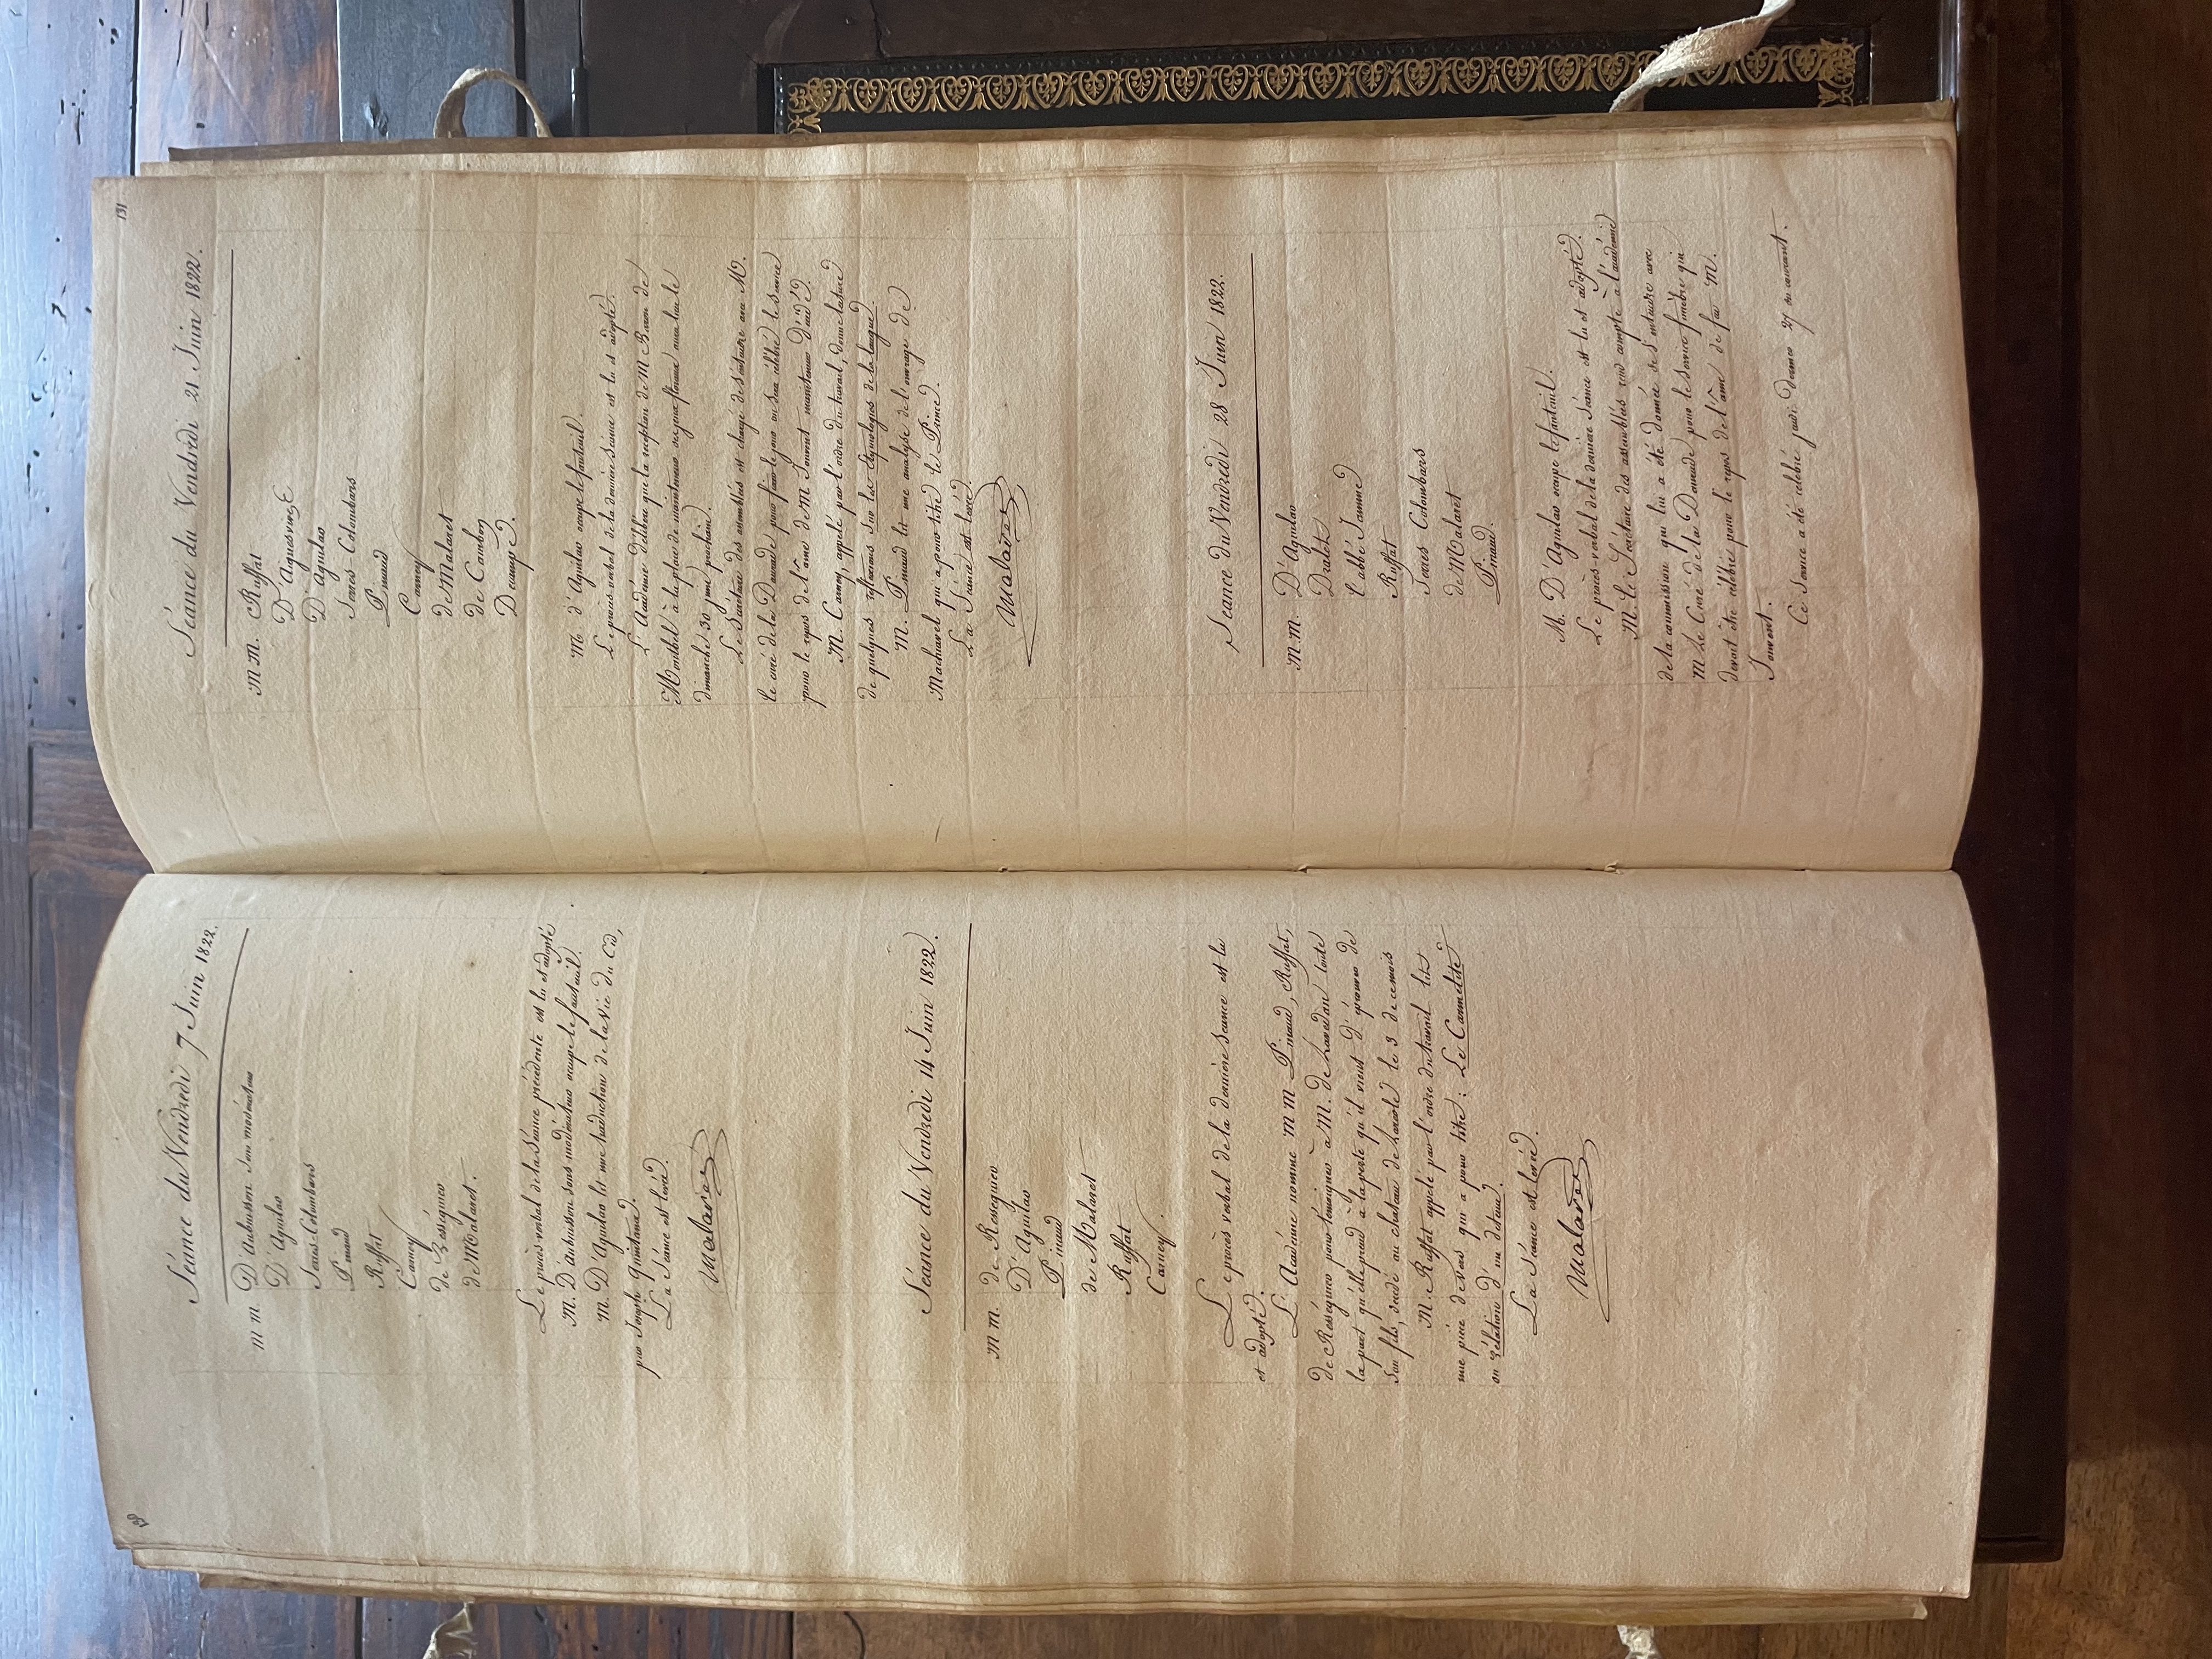 130
Séance du Vendredi 7 Juin 1822.
M M. D'Aubuisson Sous modérateur
D'Aguilar
Serres-Colombars
Pinaud
Ruffat
Carney
de Rességuier
de Malaret.
Le procès verbal de la Séance précédente est lu et adopté
M. D'Aubuisson sous modérateur occupe le fauteuil.
M. D'Aguilar lit une traduction de la vie du Cid,
par Joseph Quintana.
La Séance est levée.
Malaret
Séance du Vendredi 14 Juin 1822.
M M. de Resseguier
D'Aguilar
Pinaud
de Malaret
Ruffat
Carney.
Le procès verbal de la dernière Séance est lu
et adopté.
L'Académie nomme M M Pinaud, Ruffat,
de Rességuier pour témoigner à M. de
la part qu'elle prend à la perte qu'il vient d'éprouver de
Son fils, décédé au chateau de le 3 de ce mois
M. Ruffat appelé par l'ordre du travail lit
une pièce de vers qui a pour titre : Le Cannelite
ou Relation d'un detenu.
La Séance est levée.
Malaret
131
Séance du Vendredi 21 Juin 1822.
M M. Ruffat
D'Aguesvives
D'Aguilar
Serres-Colombars
Pinaud
Carney
de Malaret
de Cambon
Decampe.
M. d'Aguilar occupe le fauteuil.
Le procès verbal de la dernière Séance est lu et adopté.
L'Académie délibère que la réception de M Baron de
Montbel à la place de mainteneur des jeux floraux aura lieu le
dimanche 30 juin prochain.
Le Secrétaire des assemblées est chargé de s'entendre avec M.
le curé de la Daurade pour fixer le jour où sera célébré le Service
pour le repos de l'âme de M Jouvent mainteneur décédé.
M. Carney, appelé par l'ordre du travail, donne lecture
de quelques reflexions Sur les étymologies de la langue.
M. Pinaud lit une analyse de l'ouvrage de
Machiavel qui a pour titre le Prince.
La Séance est levée.
Malaret
Séance du Vendredi 28 Juin 1822.
M.M. D'Aguilar
Dralet
l'abbé Jamme
Ruffat
Serres Colombars
de Malaret
Pinaud.
M. D'Aguilar occupe le fauteuil.
Le procès verbal de la dernière Séance est lu et adopté.
M. le Secrétaire des assemblées rend compte à l'académie
de la commission qui lui a été donnée de s'entendre avec
M le Curé de la Daurade pour le Service funèbre qui
devait être célébré pour le repos de l'âme de feu M.
Jouvent.
Ce Service a été célébré jeudi dernier 27 du courant.